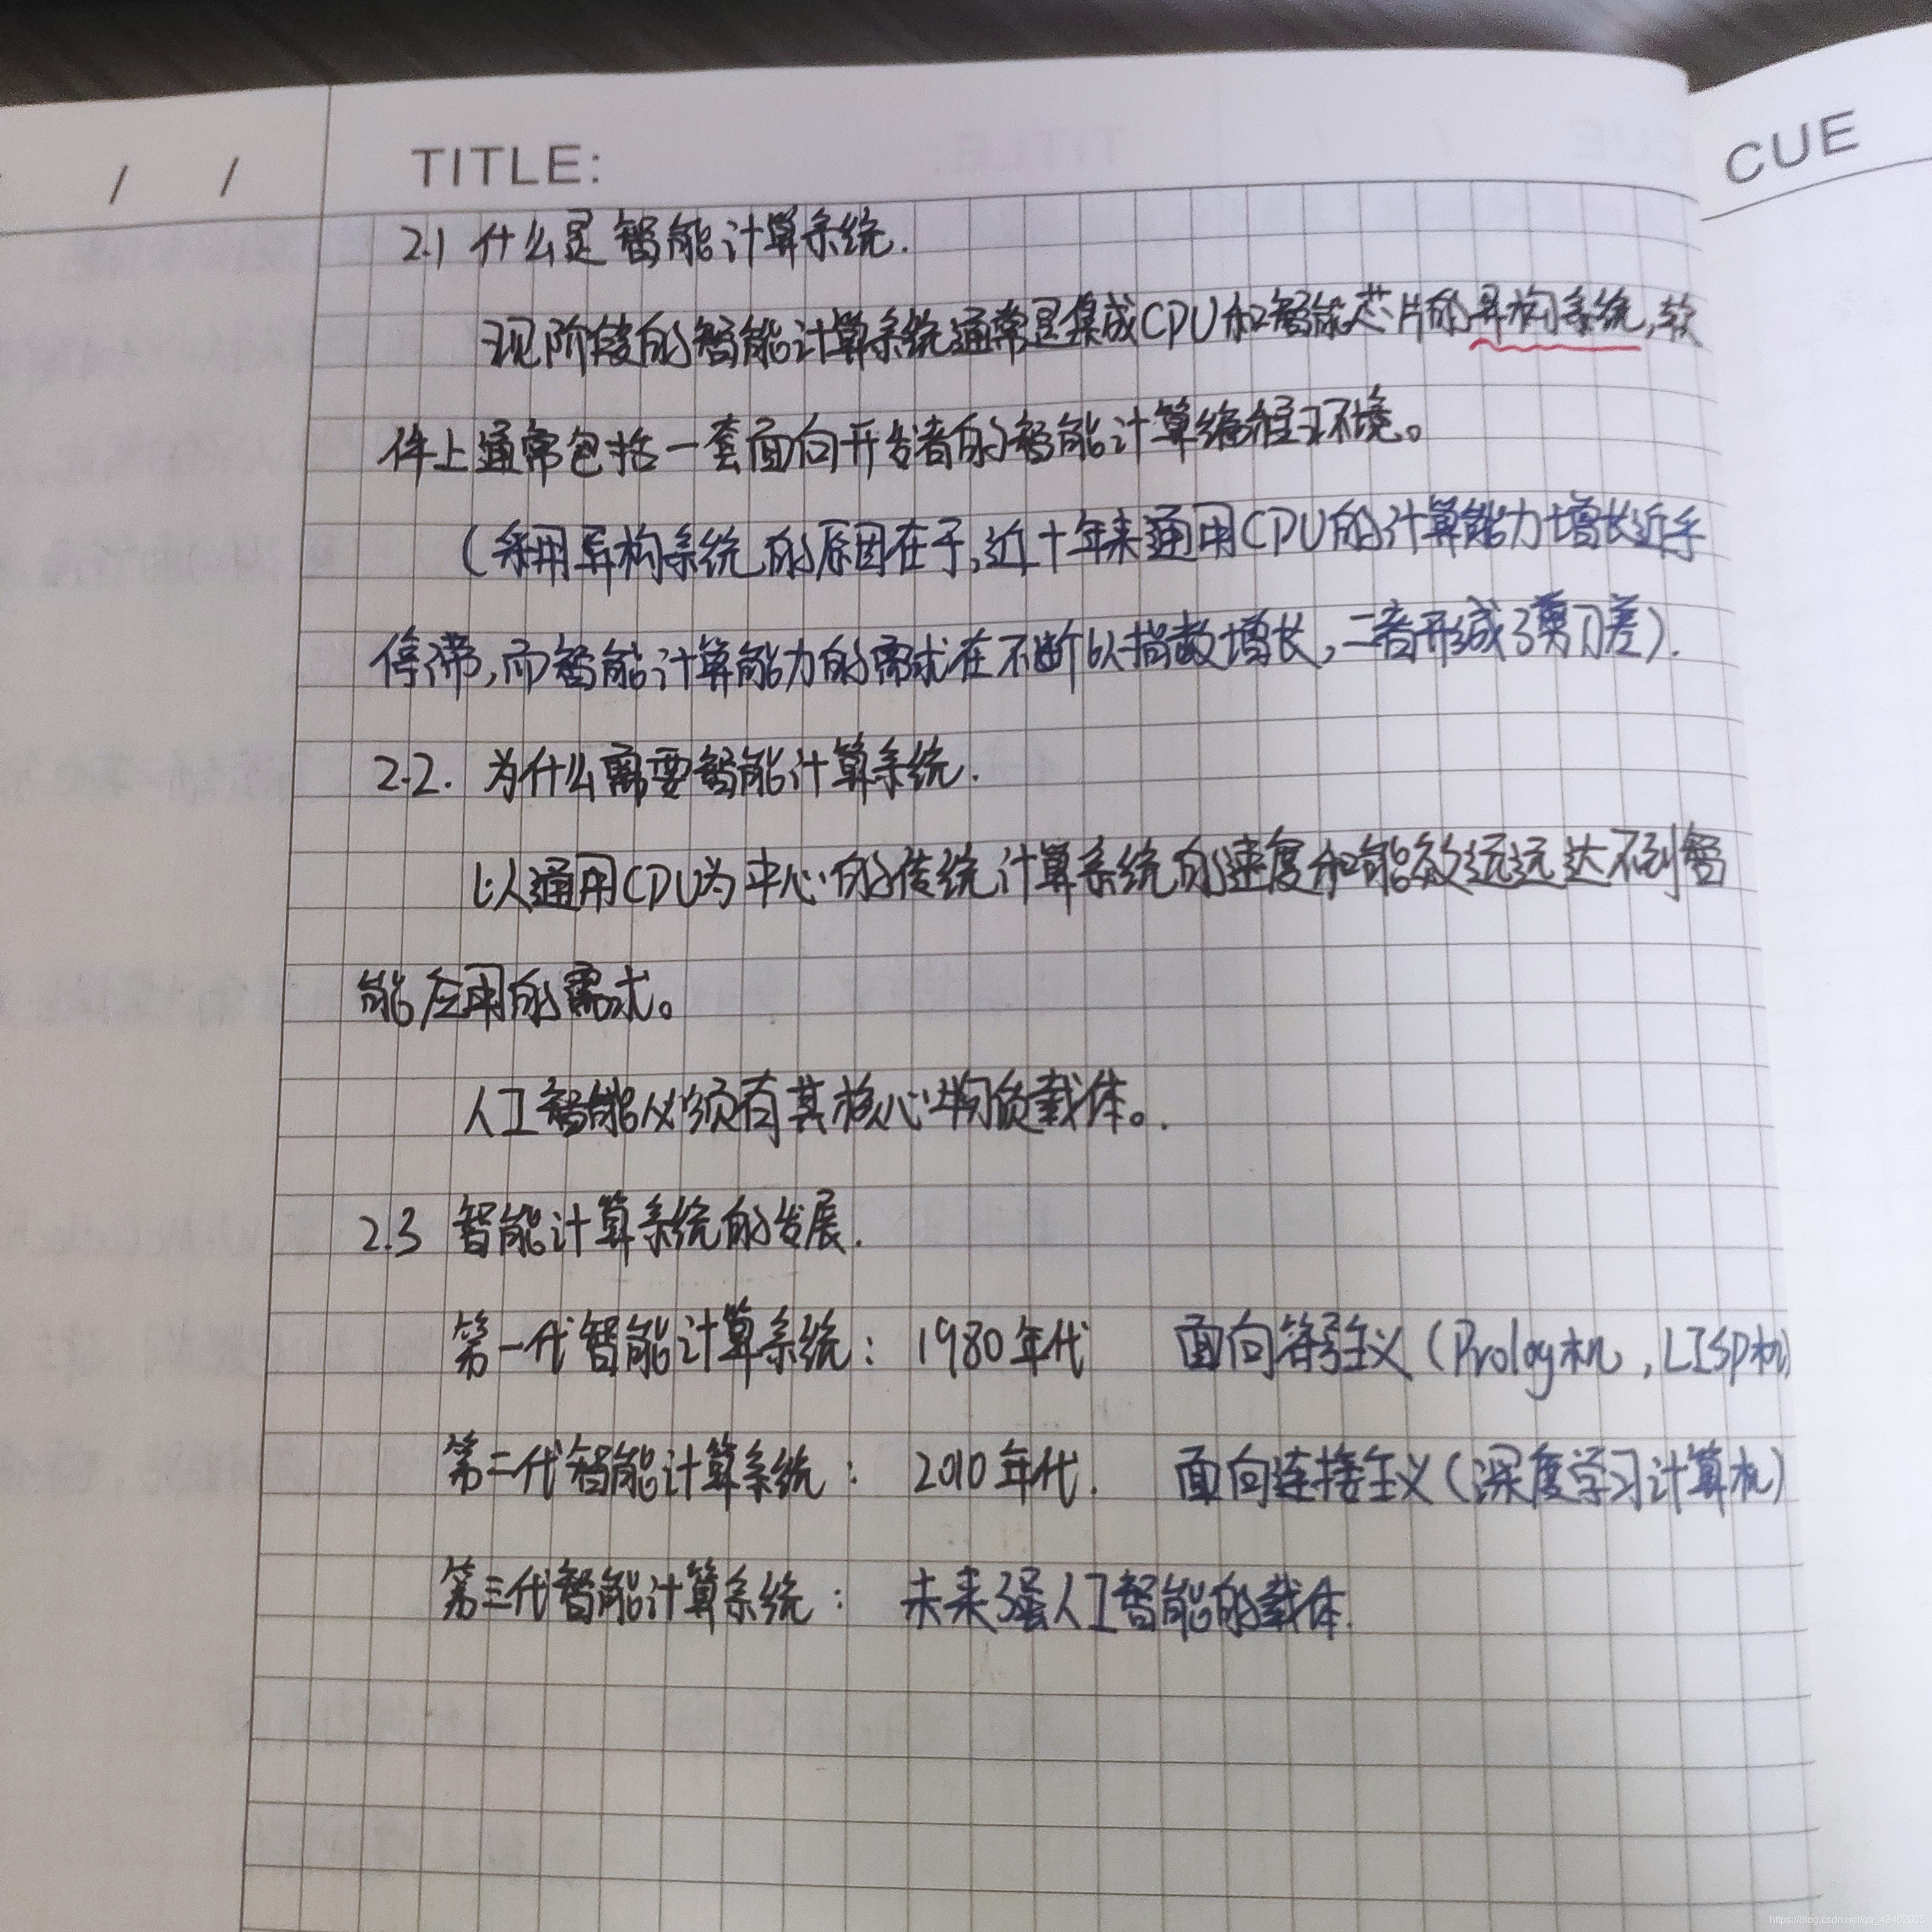 / /
TITLE:
CUE
2.1 什么是智能计算系统.
现阶段的智能计算系统通常是集成CPU和智能芯片的异构系统,软
件上通常包括一套面向开发者的智能计算编程环境。
(采用异构系统的原因在于,近十年来通用CPU的计算能力增长近乎
停滞,而智能计算能力的需求在不断以指数增长,二者形成了剪刀差).
2.2. 为什么需要智能计算系统.
以通用CPU为中心的传统计算系统的速度和能效远远达不到智
能应用的需求。
人工智能必须有其核心物质载体。.
2.3 智能计算系统的发展.
第一代智能计算系统: 1980年代 面向符号主义(Prolog机,LISP机)
第二代智能计算系统: 2010年代. 面向连接主义(深度学习计算机)
第三代智能计算系统: 未来强人工智能的载体.